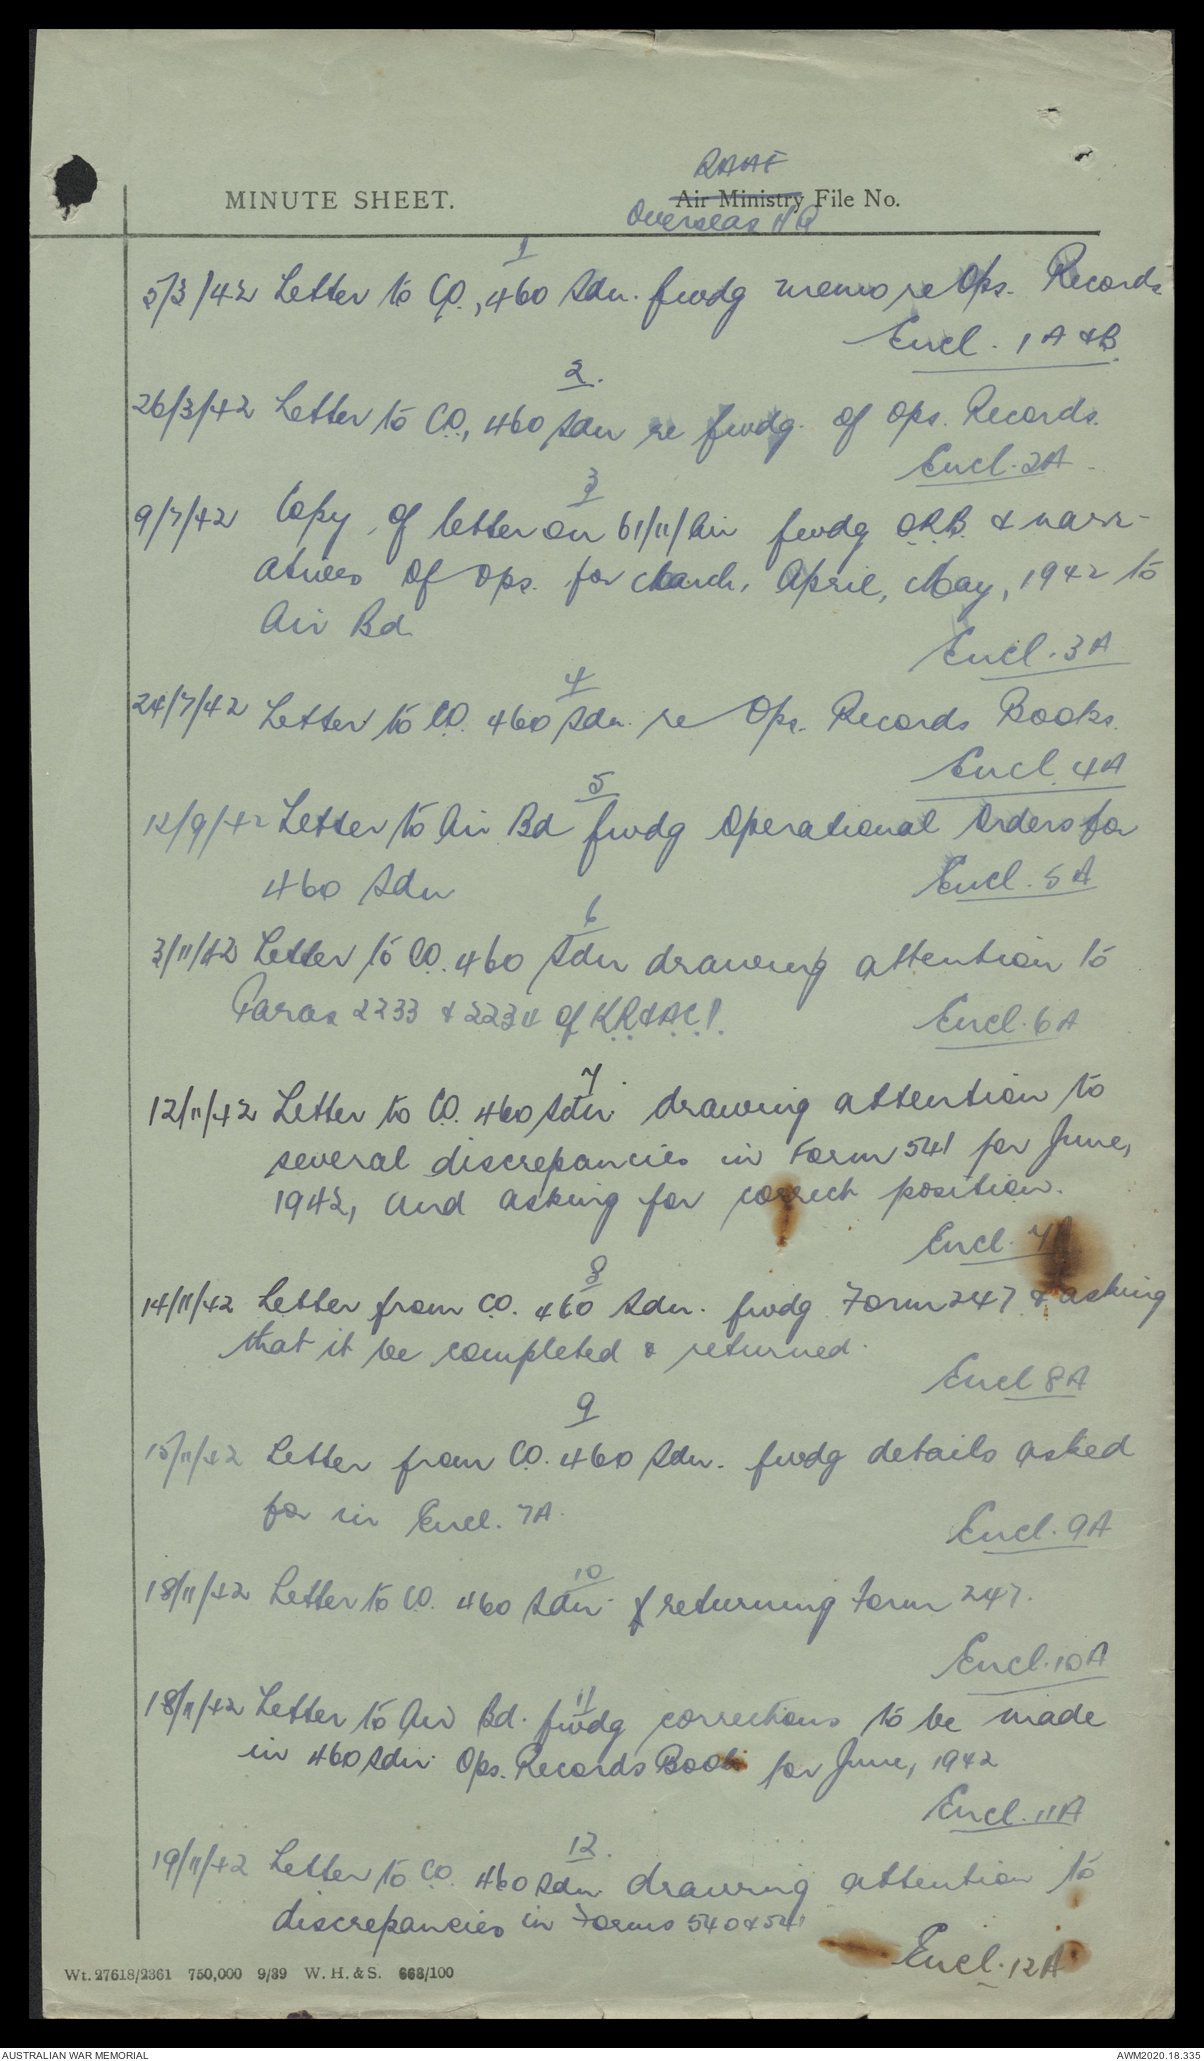 RAAF
MINUTE SHEET. Air Ministry File No.
Overseas HQ
1
5/3/42 Letter to C.O., 460 Sdn. fwdg memo re Ops. Records
Encl. 1A & B.
2.
26/3/42 Letter to C.O., 460 Sdn re fwdg. of Ops. Records.
Encl. 2A
3
9/7/42 Copy of letter on 61/11/Air fwdg O.R.B. & narr-
atives of Ops. for March, April, May, 1942 to
Air Bd.
Encl. 3A
4
24/7/42 Letter to C.O. 460 Sdn. re Ops. Records Books.
Encl. 4A
5
12/9/42 Letter to Air Bd fwdg Operational Orders for
460 Sdn
Encl. 5A
6
3/11/42 Letter to C.O. 460 Sdn drawing attention to
Paras 2233 & 2234 of K.R. & A.C.I.
Encl. 6A
7
12/11/42 Letter to C.O. 460 Sdn. drawing attention to
several discrepancies in Form 541 for June,
1942, and asking for correct position.
Encl. 7A
8
14/11/42 Letter from C.O. 460 Sdn. fwdg Form 247 & asking
that it be completed & returned.
Encl 8A
9
15/11/42 Letter from C.O. 460 Sdn. fwdg details asked
for in Encl. 7A.
Encl. 9A
10
18/11/42 Letter to C.O. 460 Sdn. returning Form 247.
Encl. 10A
11
18/11/42 Letter to Air Bd. fwdg corrections to be made
in 460 Sdn. Ops. Records Book for June, 1942
Encl. 11A
12.
19/11/42 Letter to C.O. 460 Sdn. drawing attention to
discrepancies in Forms 540 & 541
Encl. 12A
Wt. 27618/2361 750,000 9/39 W. H. & S. 668/100
AUSTRALIAN WAR MEMORIAL AWM2020.18.335